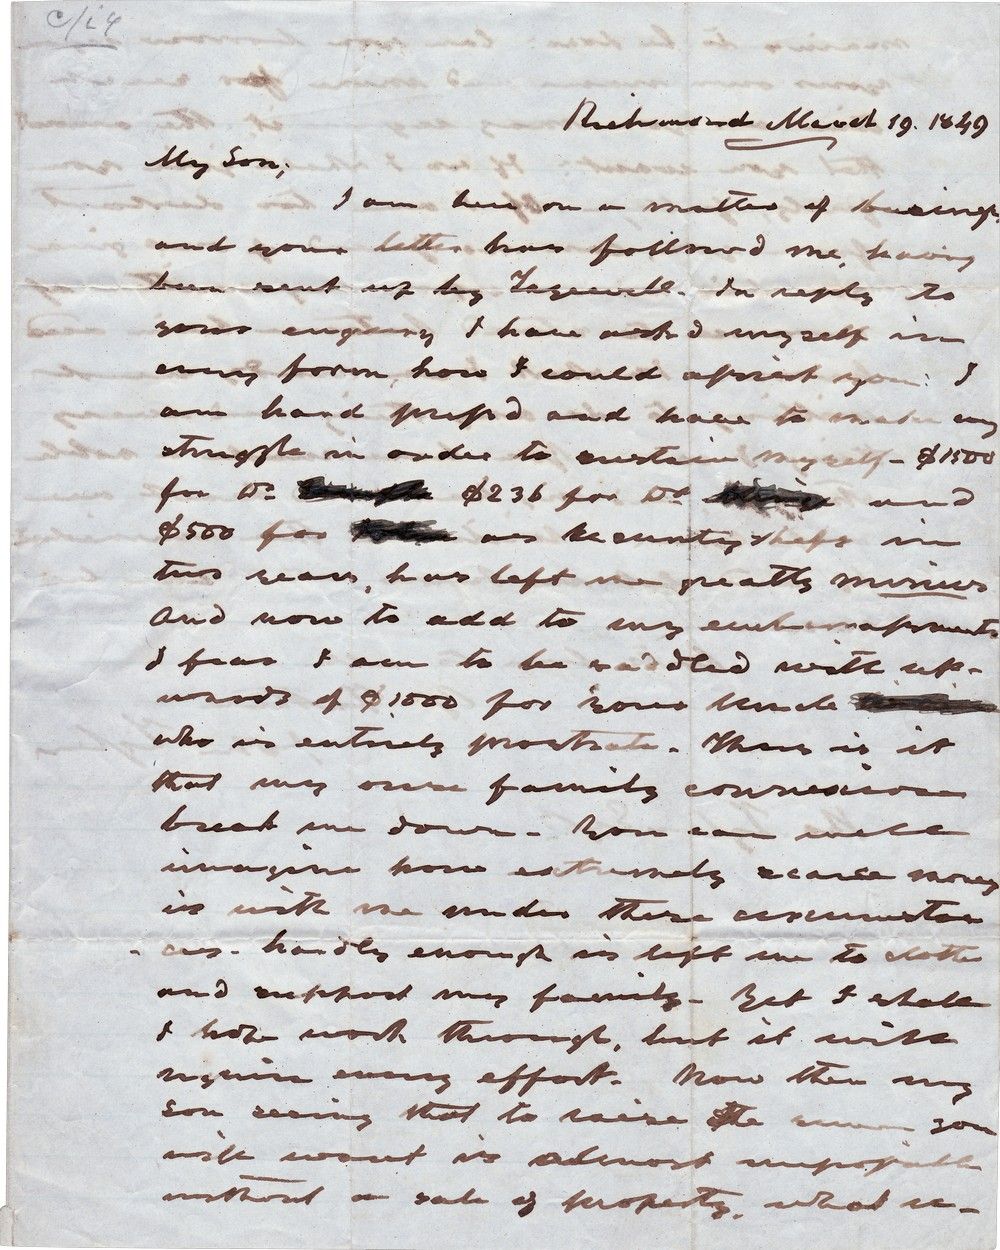 Richmond March 19. 1849
My Son;
I am here on a matter of business,
and your letter has followed me, having
been sent up by Tazewell. In reply to
your enquiry I have ask'd myself in
every form, how I could assist you: I
am hard press'd and have to make my
struggle in order to sustain myself - $1500
for Dr. $236 for Dr and
$500 for as security ships in
two years, has left me greatly minus
And now to add to my embarrassments
I fear I am to be saddled with up-
wards of $1000 for your Uncle
who is entirely prostrate. Thus is it
that my own family connexions
break me down - You can well
imagine how extremely scarce money
is with me under these circumstan
- ces - hardly enough is left me to clothe
and support my family - Yet I shall
I hope work through, but it will
require every effort. Now then my
son seeing that to raise the sum you
will want is almost impossible
without a sale of property, what re-